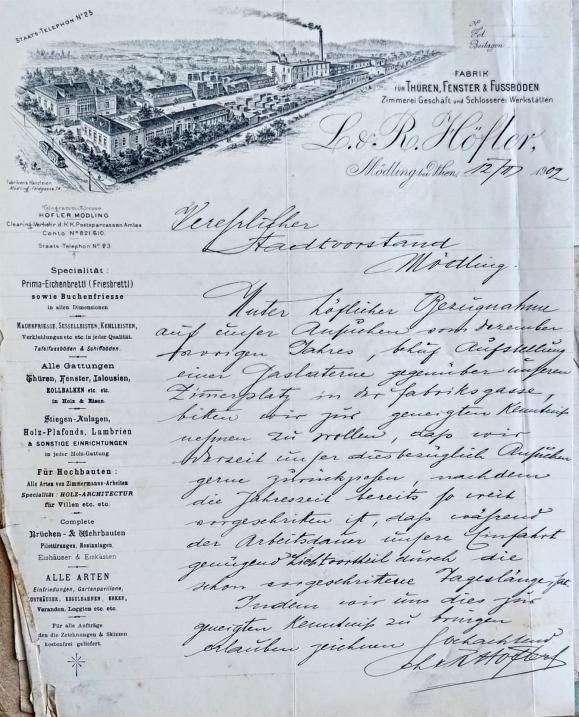 STAATS-TELEPHON Nº 23
Nº
Fol.
Beilagen
FABRIK
FÜR THÜREN, FENSTER & FUSSBÖDEN
Zimmerei Geschäft und Schlosserei Werkstätten
L. & R. Höfler,
Mödling bei Wien, 12/II 1902
Telegramm-Adresse:
HÖFLER MÖDLING
Clearing-Verkehr d. K.K. Postsparcassen-Amtes
Conto Nº 821.610.
Staats-Telephon Nº 23
Specialität:
Prima-Eichenbrettl (Friesbrettl)
sowie Buchenfriesse
in allen Dimensionen
MAUERFRIESSE, SESSELLEISTEN, KEHLLEISTEN,
Verkleidungen etc. etc. in jeder Qualität.
Tafelfussböden & Schifböden.
Alle Gattungen
Thüren, Fenster, Jalousien,
ROLLBALKEN etc. etc.
in Holz & Eisen
Stiegen-Anlagen,
Holz-Plafonds, Lambrien
& SONSTIGE EINRICHTUNGEN
in jeder Holz-Gattung
Für Hochbauten:
Alle Arten von Zimmermanns-Arbeiten
Specialität: HOLZ-ARCHITECTUR
für Villen etc. etc.
Complete
Brücken- & Wehrbauten
Pilottirungen, Rostanlagen,
Eishäuser & Eiskästen
ALLE ARTEN
Einfriedungen, Gartenpavillone,
LUSTHÄUSER, KEGELBAHNEN, ERKER,
Veranden, Loggien etc. etc.
Für alle Aufträge
den die Zeichnungen & Skizzen
kostenfrei geliefert.
Verehrlicher
Stadtvorstand
Mödling.
Unter höflicher Bezugnahme
auf unser Ansuchen vom Dezember
vorigen Jahres, behufs Aufstellung
einer Gaslaterne gegenüber unseren
Zimerplatz in der Fabriksgasse,
bitten wir zur geneigten Kenntniß
nehmen zu wollen, daß wir
derzeit unser diesbezüglich Ansuchen
gerne zurückziehen, nachdem
die Jahreszeit bereits so weit
vorgeschritten ist, daß während
der Arbeitsdauer unsere Einfahrt
genügend Lichtvortheil durch die
schon vorgeschrittene Tageslänge hat
Indem wir uns dies zur
geneigten Kenntniß zu bringen
erlauben zeichnen
Hochachtend
L & R Höfler